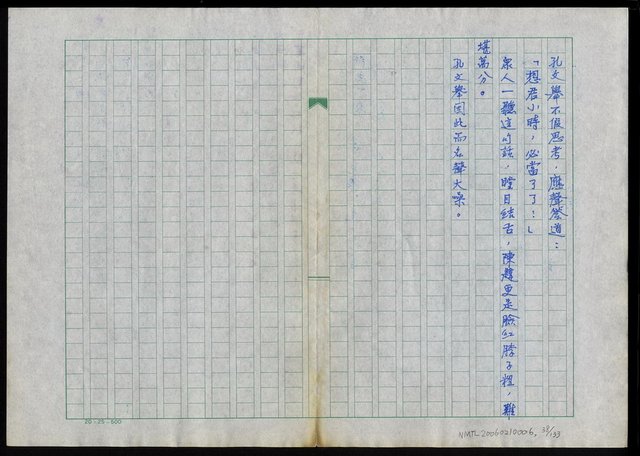 孔文舉不假思考，應聲答道：
「想君小時，必當了了！」
眾人一聽這句話，瞠目結舌，陳韙更是臉紅脖子粗，難
堪萬分。
孔文舉因此而名聲大噪。
20-25-500
NMTL20060210006, 38/133